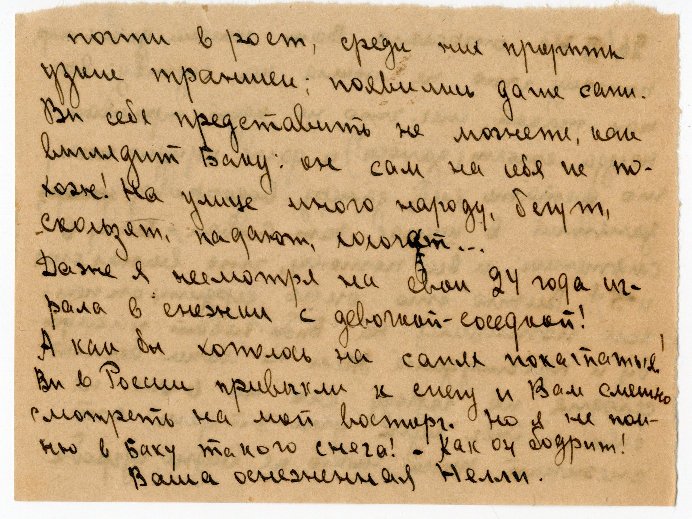 почти в рост, среди них прорыты
узкие траншеи; появились даже сани.
Вы себе представить не можете, как
выглядит Баку: он сам на себя не по-
хож! На улице много народу, бегут,
скользят, падают, хохочат...
Даже я несмотря на свои 24 года иг-
рала в снежки с девочкой-соседкой!
А как бы хотелось на санях покататься!
Вы в России привыкли к снегу и Вам смешно
смотреть на мой восторг. Но я не пом-
ню в Баку такого снега! - Как он бодрит!
Ваша оснеженная Нелли.